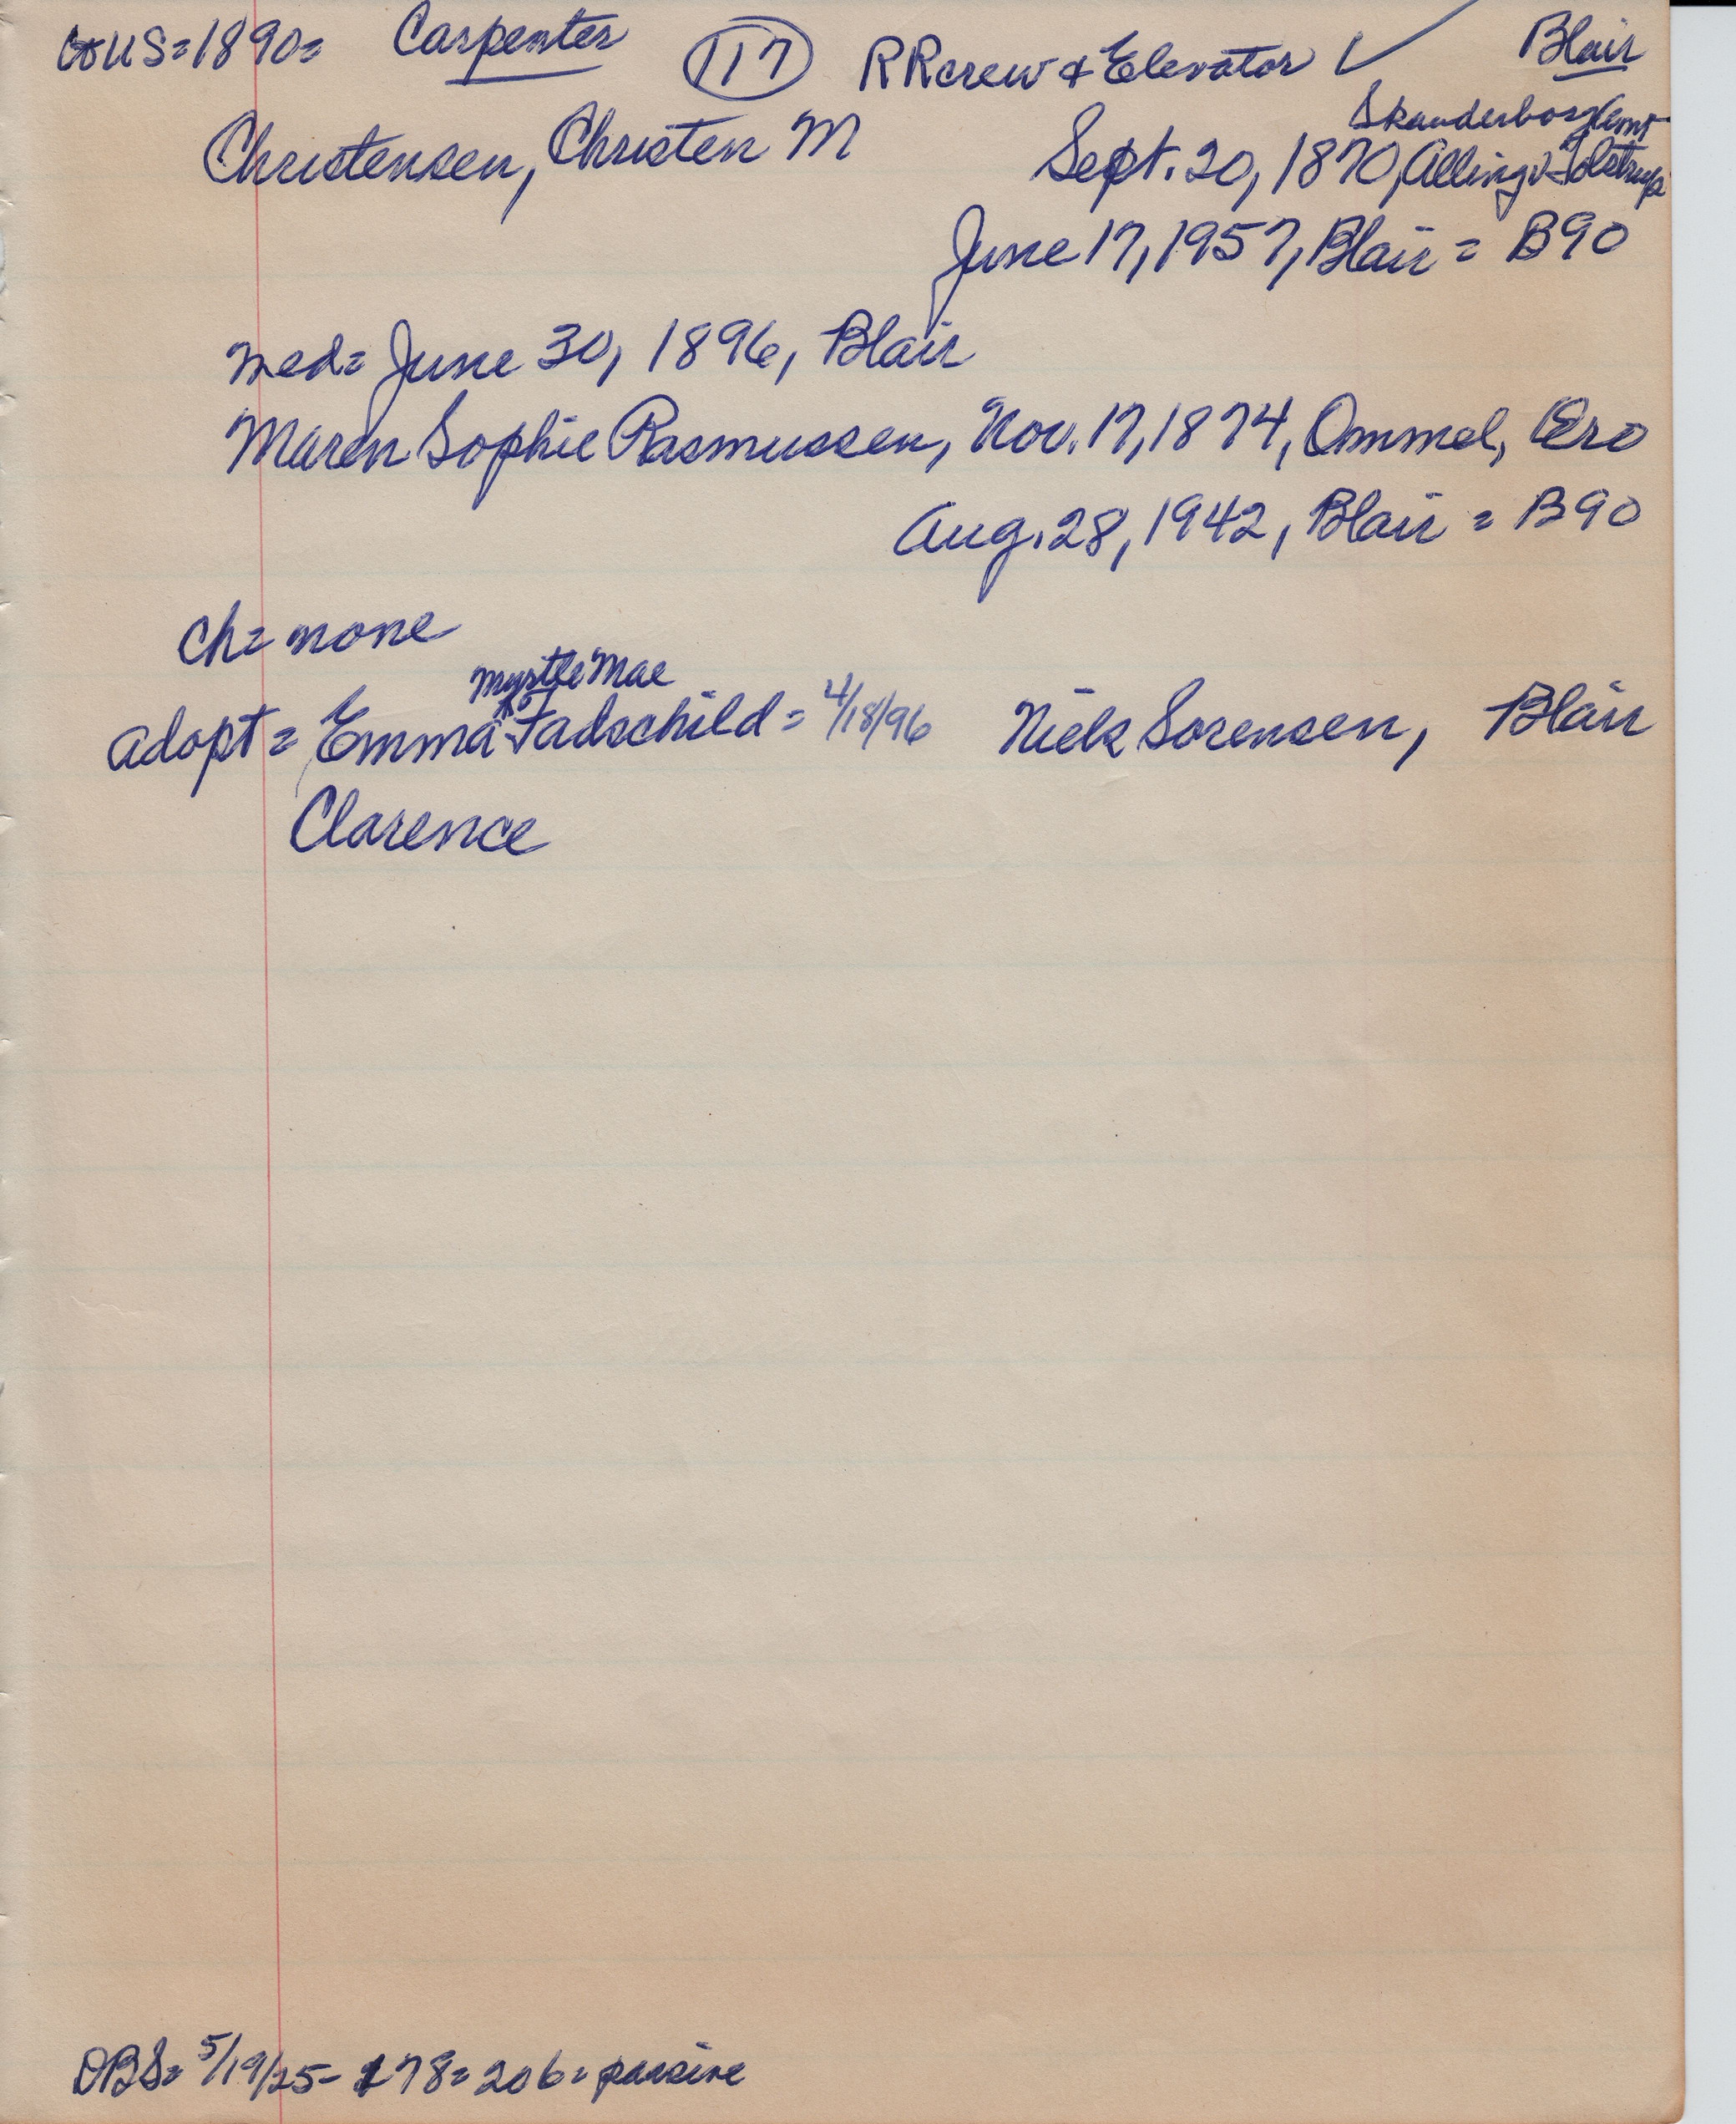 to US = 1890 = Carpenter 117 RR crew & Elevator ✓ Blair
Skanderborg Amt
Christensen, Christen M Sept. 20, 1870, Alling v Tolstrup
June 17, 1957, Blair = B90
med = June 30, 1896, Blair
Maren Sophie Rasmussen, Nov. 17, 1874, Ommel, Ero
Aug. 28, 1942, Blair = B90
ch = none
Myrtle Mae
adopt = Emma Fadschild = 4/18/96 Niels Sorensen, Blair
Clarence
DBS = 5/19/25 - 178 = 206 = passive